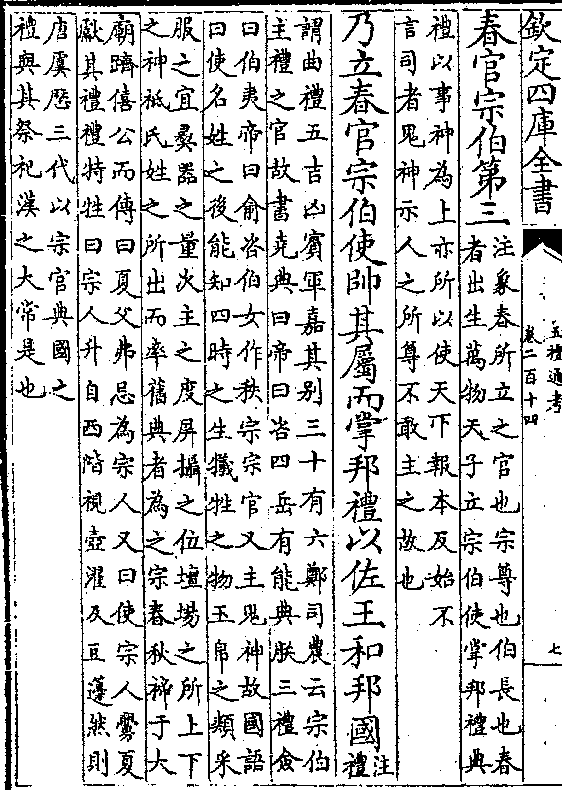 欽定四庫全書
五禮通考
卷二百十四
七
春官宗伯第三
注象春所立之官也宗尊也伯長也春
者出生萬物天子立宗伯使掌邦禮典
禮以事神為上亦所以使天下報本反始不
言司者鬼神示人之所尊不敢主之故也
乃立春官宗伯使帥其屬而掌邦禮以佐王和邦國
注
禮
謂曲禮五吉凶賓軍嘉其别三十有六鄭司農云宗伯
主禮之官故書堯典曰帝曰咨四岳有能典朕三禮僉
曰伯夷帝曰俞咨伯女作秩宗宗官又主鬼神故國語
曰使名姓之後能知四時之生犧牲之物玉帛之類采
服之宜彝器之量次主之度屏攝之位壇場之所上下
之神祗氏姓之所出而率舊典者為之宗春秋禘于大
廟躋僖公而傳曰夏父弗忌為宗人又曰使宗人釁夏
獻其禮禮特牲曰宗人升自西階視壺濯及豆籩然則
唐虞歷三代以宗官典國之
禮與其祭祀漢之大常是也